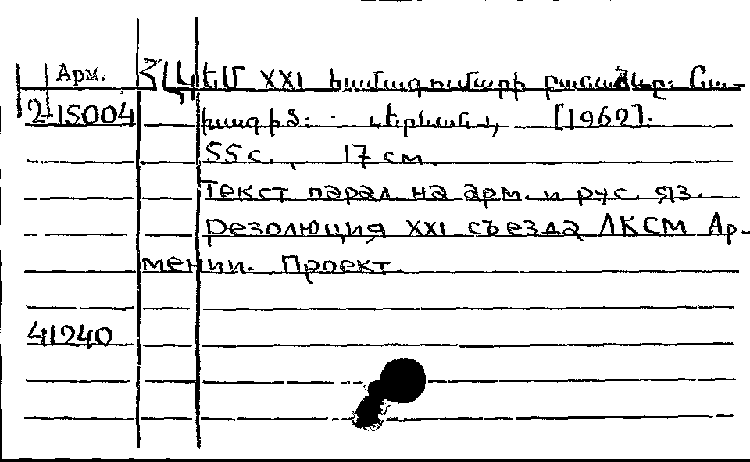 Арм. ՀԼԿԵՄ XXI համագումարի բանաձևը: Նա-
2-15004 խագիծ: - Երևան, [1962].
55 с., 17 см.
Текст парал на арм. и рус. яз.
Резолюция XXI съезда ЛКСМ Ар-
мении. Проект.
41240